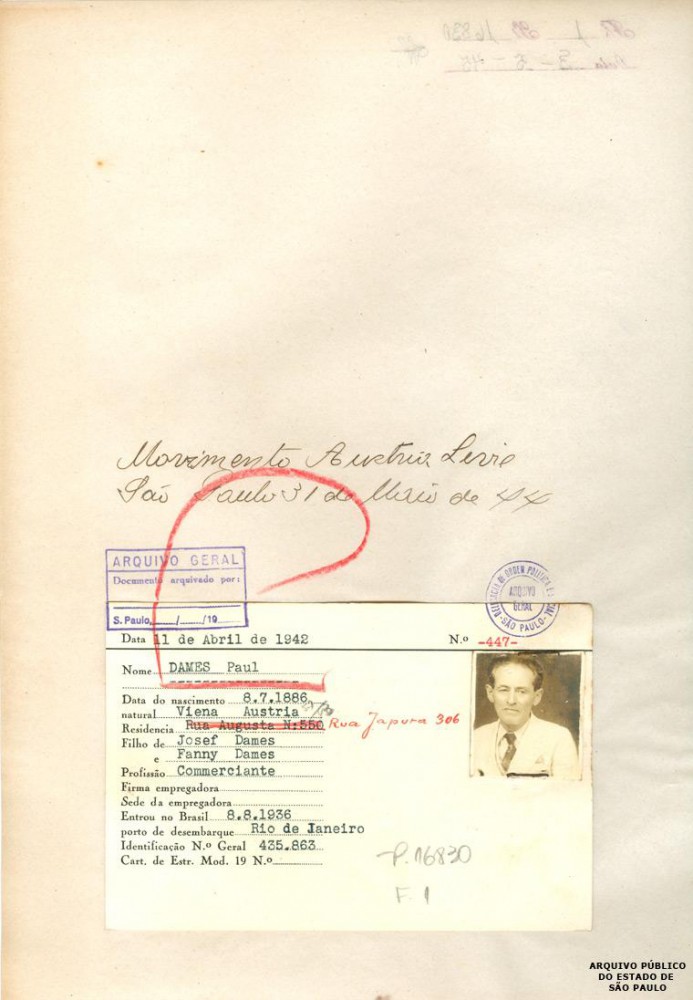 Movimento Austria Livre
São Paulo 31 de Maio de 44
ARQUIVO GERAL
Documento arquivado por:
S. Paulo,____/____/19____
DELEGACIA DE ORDEM POLITICA E SOCIAL
ARQUIVO
GERAL
-SÃO PAULO-
Data 11 de Abril de 1942 N.º -447-
Nome DAMES Paul
Data do nascimento 8.7.1886
natural Viena Austria
Residencia Rua Augusta N:550 Rua Japura 306
Filho de Josef Dames
e Fanny Dames
Profissão Commerciante
Firma empregadora
Sede da empregadora
Entrou no Brasil 8.8.1936
porto de desembarque Rio de Janeiro
Identificação N.º Geral 435.863
Cart. de Estr. Mod. 19 N.º
P. 16830
F. 1
ARQUIVO PÚBLICO
DO ESTADO DE
SÃO PAULO